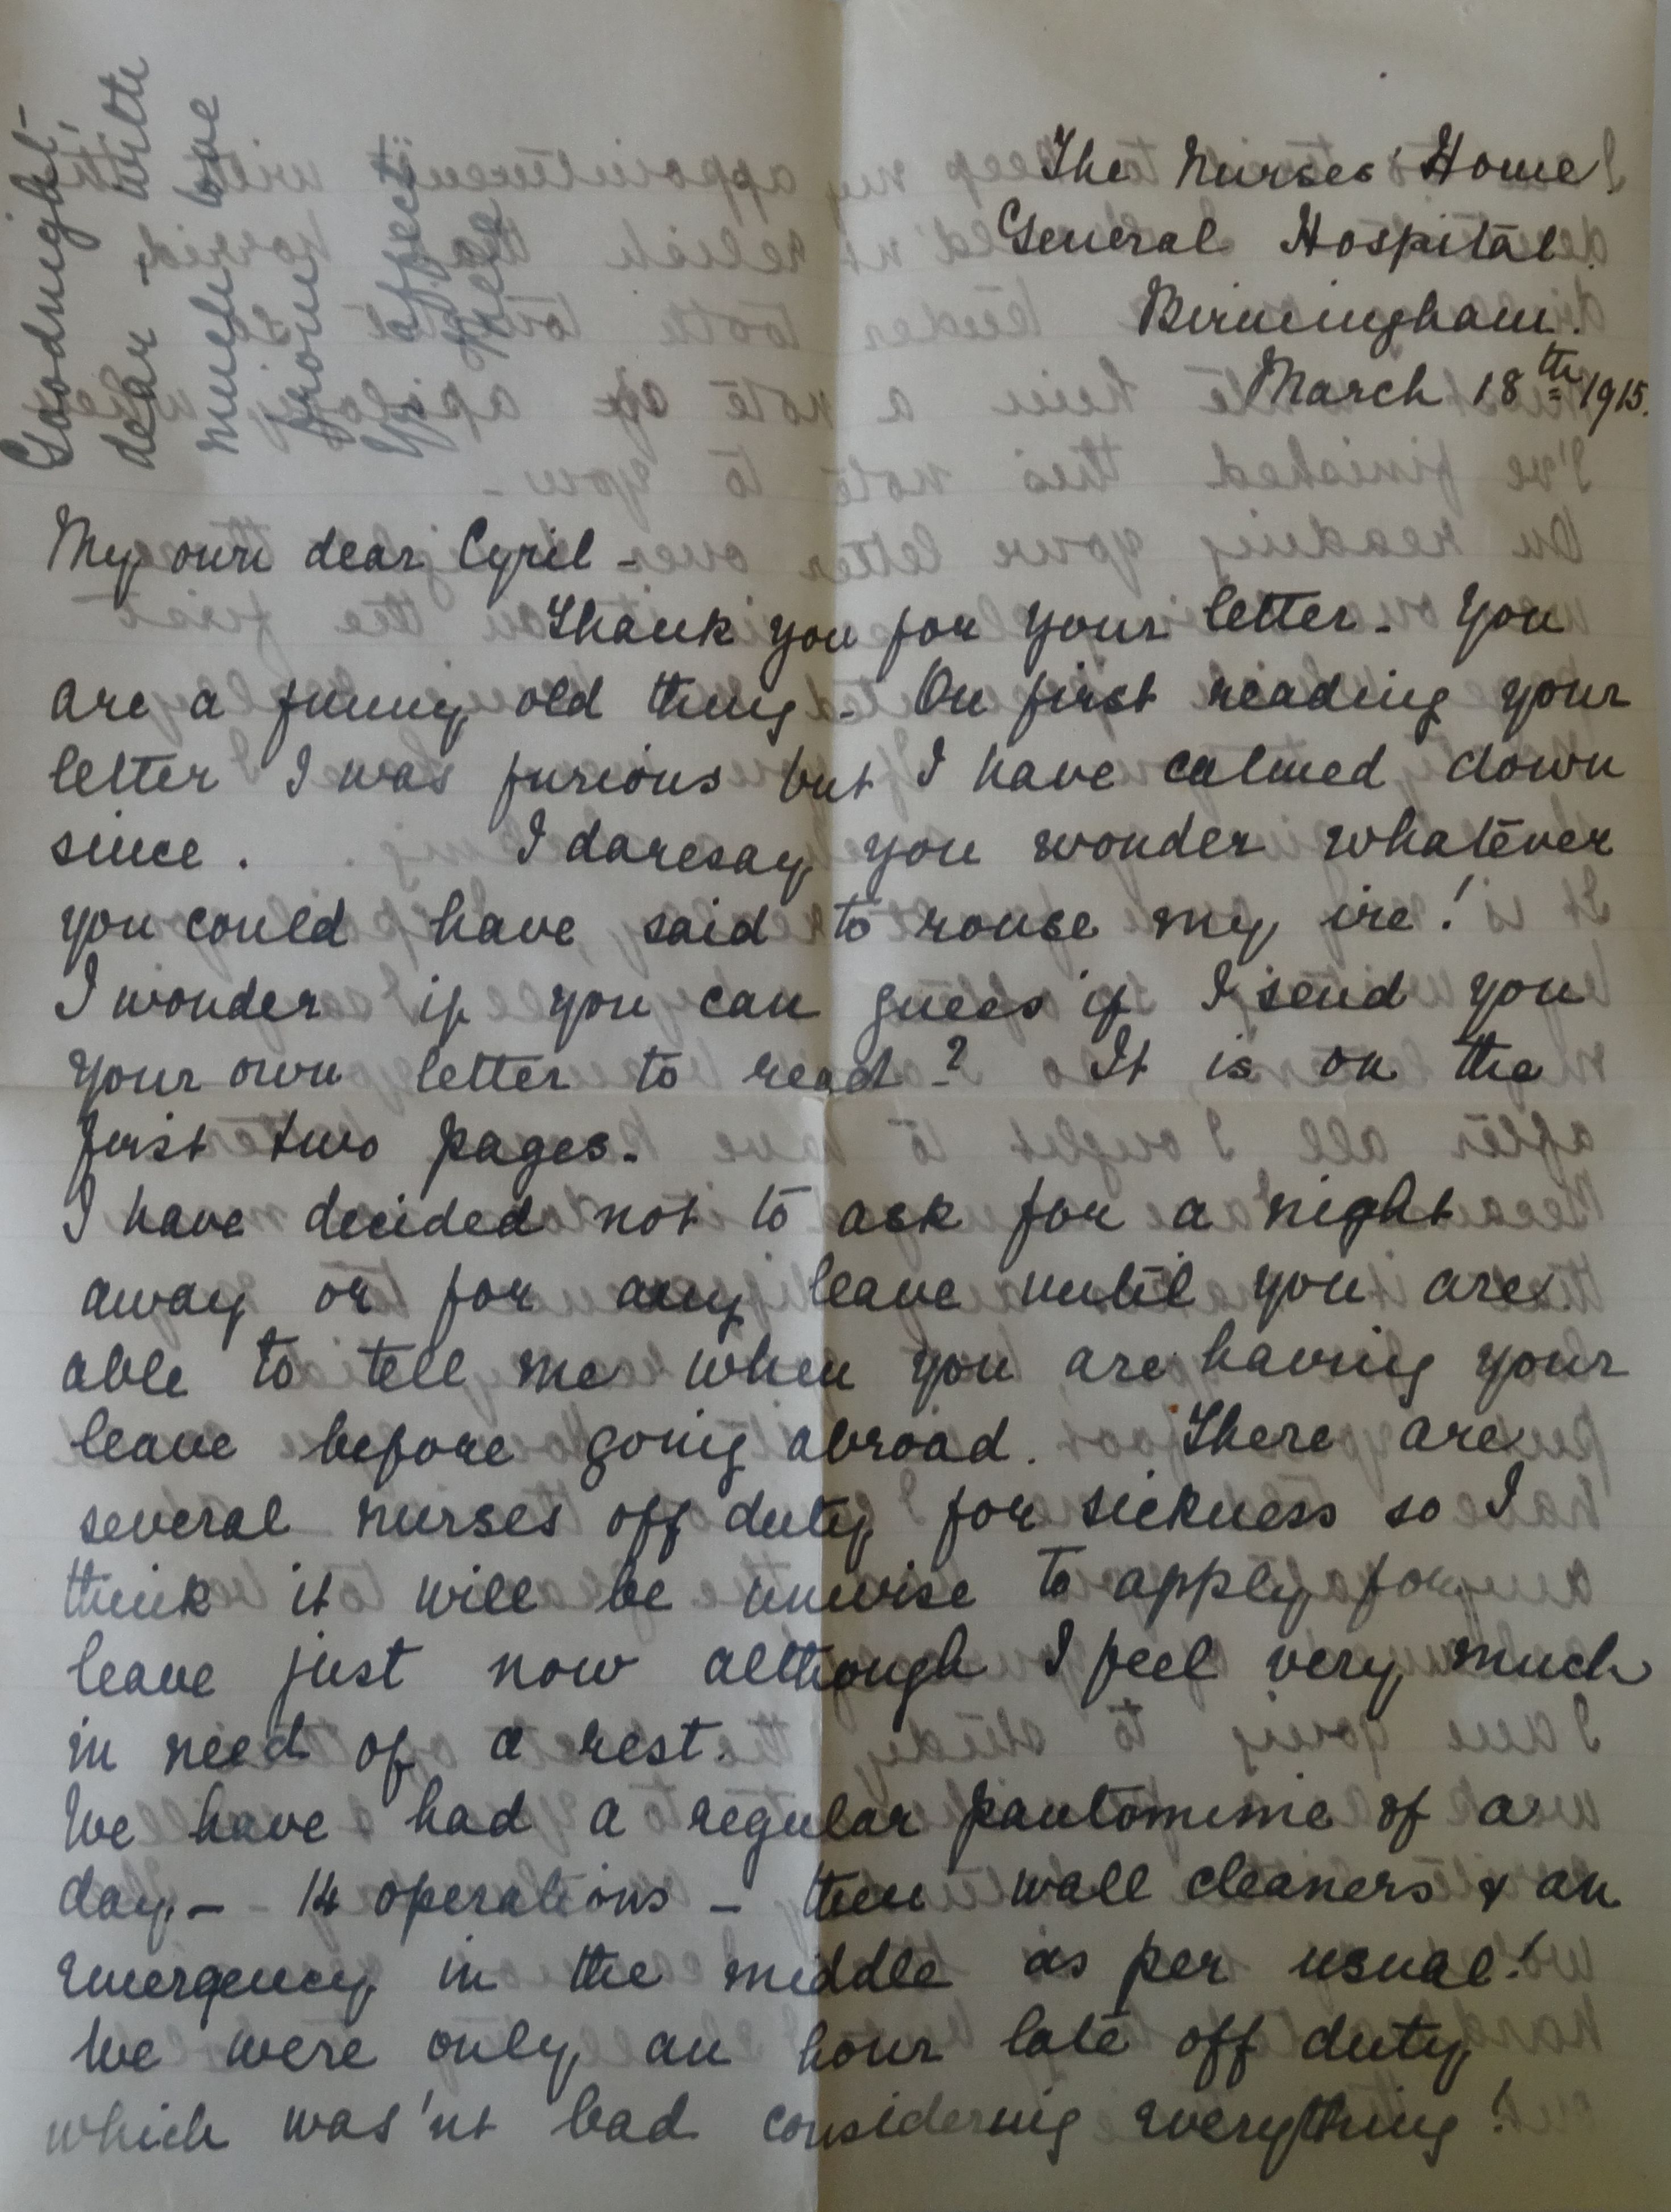 The Nurses' Home.
General Hospital.
Birmingham.
March 18th 1915.
My own dear Cyril -
Thank you for your letter - You
are a funny old thing - On first reading your
letter I was furious but I have calmed down
since. I daresay you wonder whatever
you could have said to rouse my ire!
I wonder if you can guess if I send you
your own letter to read? It is on the
first two pages -
I have decided not to ask for a night
away or for any leave until you are
able to tell me when you are having your
leave before going abroad. There are
several nurses off duty for sickness so I
think it will be unwise to apply for
leave just now although I feel very much
in need of a rest.
We have had a regular pantomime of a
day - 14 operations - then wall cleaners & an
emergency in the middle as per usual!
We were only an hour late off duty
which was'nt bad considering everything!
Goodnight -
dear - with
much love
from
Yr affect: